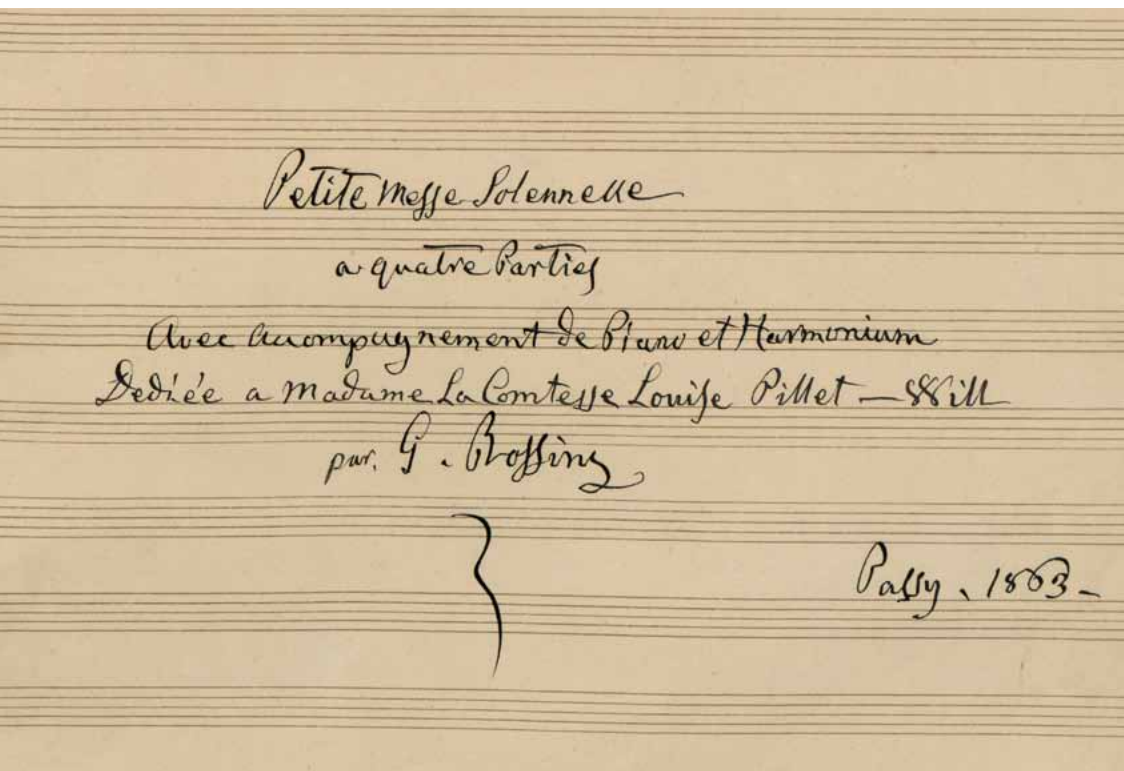 Petite Messe Solennelle
a quatre Parties
Avec accompagnement de Piano et Harmonium
Dediée a Madame La Comtesse Louise Pillet — Will
par. G. Rossini
Passy. 1863 -